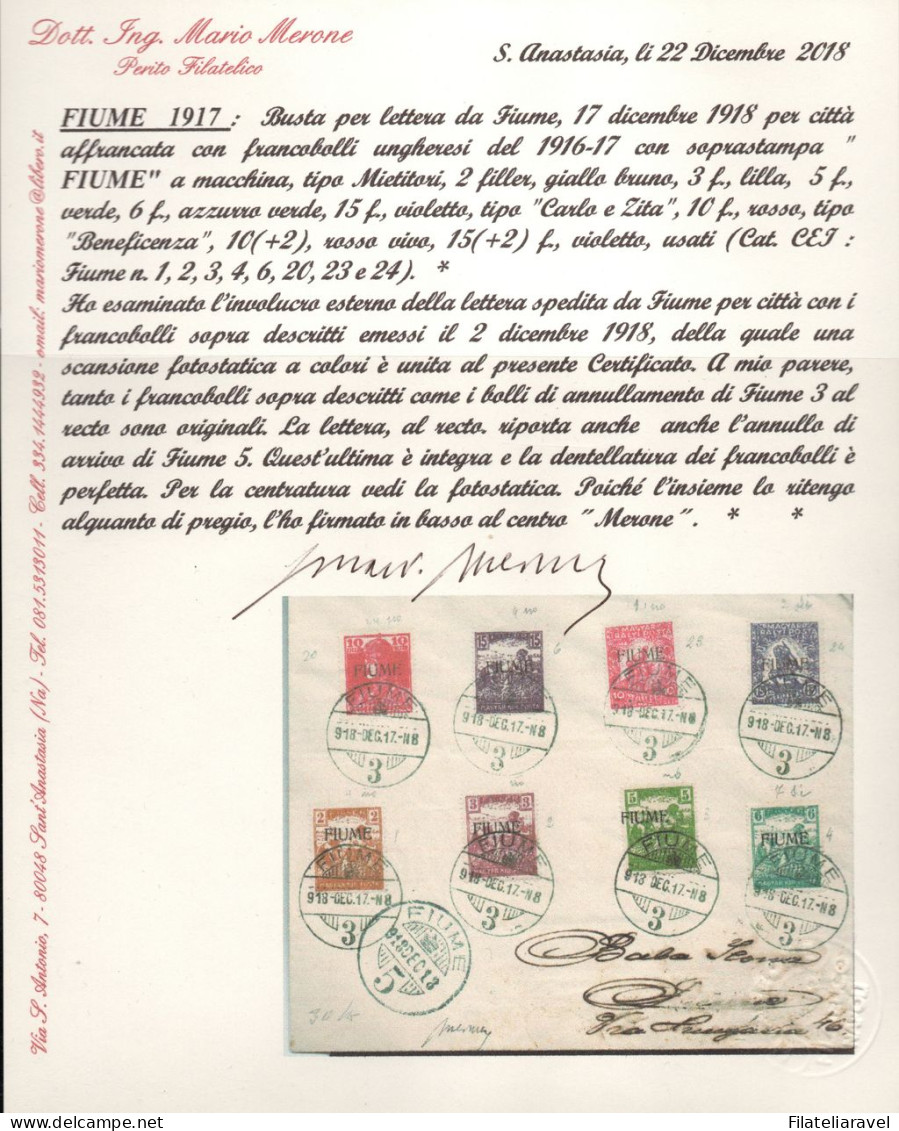 Dott. Ing. Mario Merone
Perito Filatelico
S. Anastasia, li 22 Dicembre 2018
FIUME 1917 : Busta per lettera da Fiume, 17 dicembre 1918 per città
affrancata con francobolli ungheresi del 1916-17 con soprastampa "
FIUME" a macchina, tipo Mietitori, 2 filler, giallo bruno, 3 f., lilla, 5 f.,
verde, 6 f., azzurro verde, 15 f., violetto, tipo "Carlo e Zita", 10 f., rosso, tipo
"Beneficenza", 10(+2), rosso vivo, 15(+2) f., violetto, usati (Cat. CEI :
Fiume n. 1, 2, 3, 4, 6, 20, 23 e 24). *
Ho esaminato l'involucro esterno della lettera spedita da Fiume per città con i
francobolli sopra descritti emessi il 2 dicembre 1918, della quale una
scansione fotostatica a colori è unita al presente Certificato. A mio parere,
tanto i francobolli sopra descritti come i bolli di annullamento di Fiume 3 al
recto sono originali. La lettera, al recto. riporta anche anche l'annullo di
arrivo di Fiume 5. Quest'ultima è integra e la dentellatura dei francobolli è
perfetta. Per la centratura vedi la fotostatica. Poiché l'insieme lo ritengo
alquanto di pregio, l'ho firmato in basso al centro "Merone". * *
Via S. Antonio, 7 - 80048 Sant'Anastasia (Na) - Tel. 081.5313011 - Cell. 334.1444932 - email: mariomerone@libero.it
10 FIUME
15 FIUME
FIUME 10
FIUME 15
20
6
23
24
FIUME 918-DEC.17.-N8 3
FIUME 918-DEC.17.-N8 3
FIUME 918-DEC.17.-N8 3
FIUME 918-DEC.17.-N8 3
2 2 FIUME
3 3 FIUME
5 5 FIUME
6 6 FIUME
1
2
3
4
FIUME 918-DEC.17.-N8 3
FIUME 918-DEC.17.-N8 3
FIUME 918-DEC.17.-N8 3
FIUME 918-DEC.17.-N8 3
FIUME 918DEC18 5
Baba Ilona
Fiume
Via Hungaria 46.
Filateliaravel